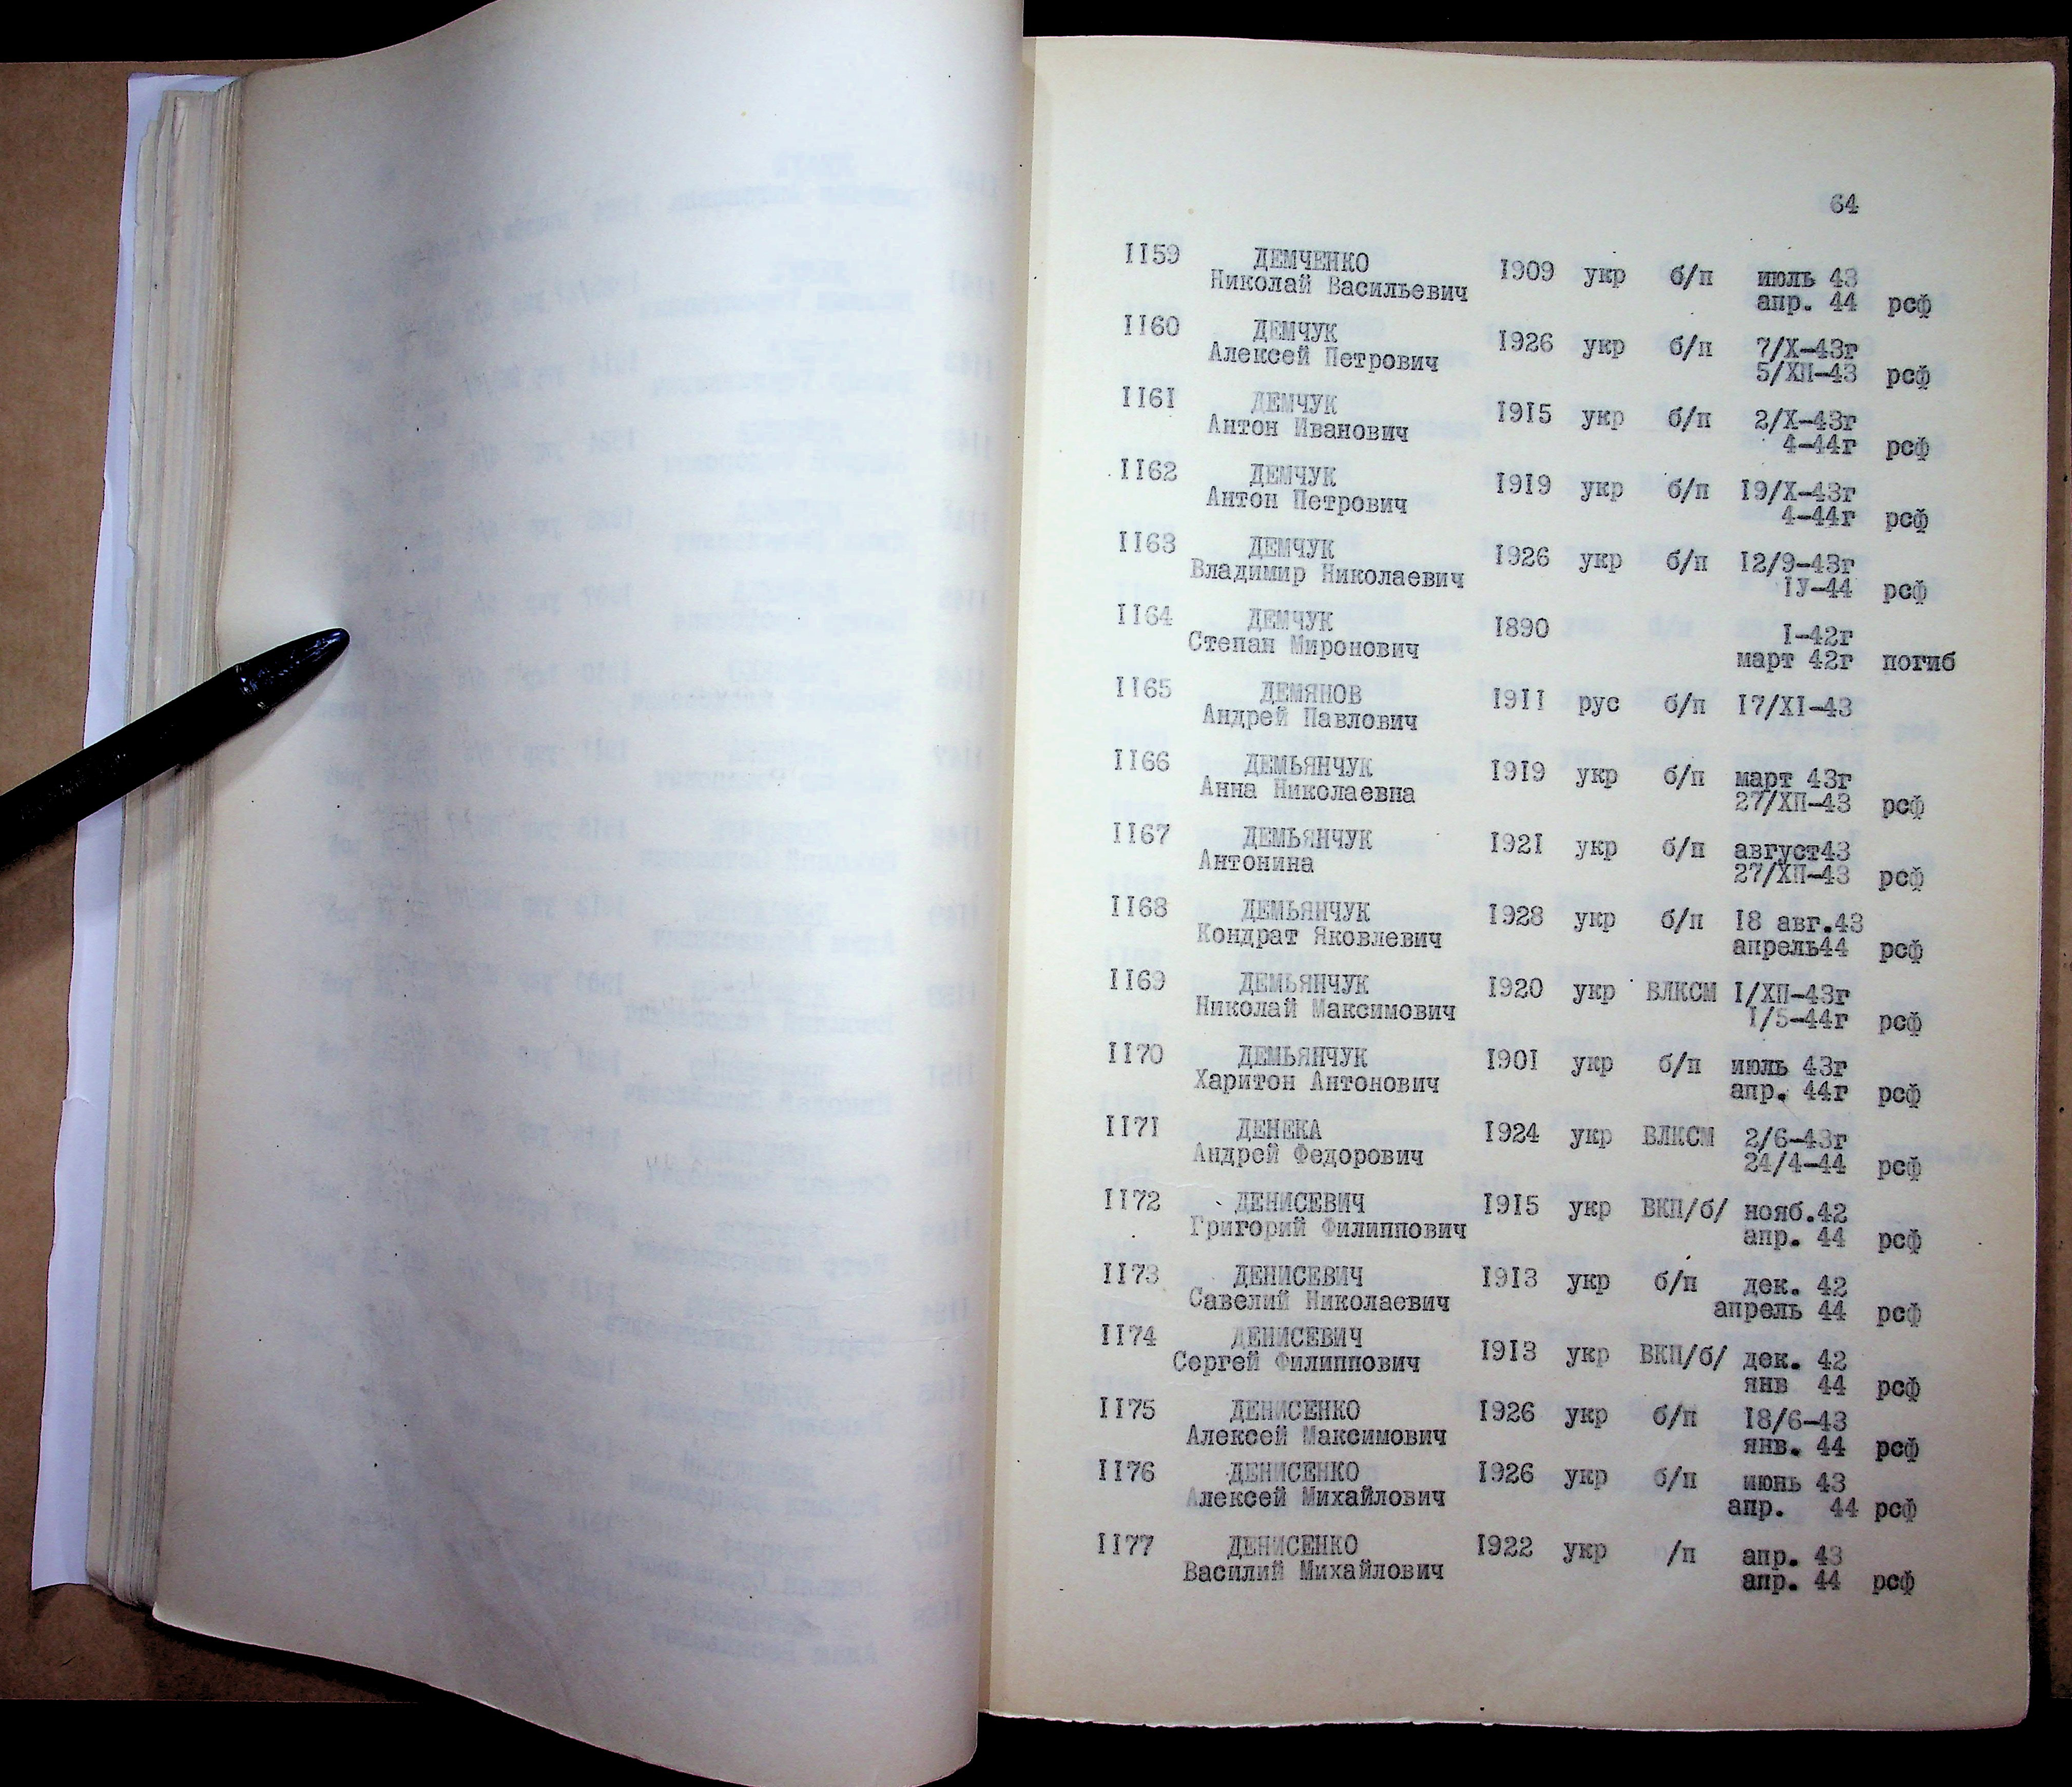 64
II59 ДЕМЧЕНКО
Николай Васильевич I909 укр б/п июль 43
апр. 44 рсф
II60 ДЕМЧУК
Алексей Петрович I926 укр б/п 7/Х-43г
5/ХП-43 рсф
II6I ДЕМЧУК
Антон Иванович I9I5 укр б/п 2/Х-43г
4-44г рсф
II62 ДЕМЧУК
Антон Петрович I9I9 укр б/п I9/Х-43г
4-44г рсф
II63 ДЕМЧУК
Владимир Николаевич I926 укр б/п I2/9-43г
IУ-44 рсф
II64 ДЕМЧУК I890
Степан Миронович I-42г
март 42г погиб
II65 ДЕМЯНОВ I9II рус б/п I7/ХI-43
Андрей Павлович
II66 ДЕМЬЯНЧУК I9I9 укр б/п март 43г
Анна Николаевна 27/ХП-43 рсф
II67 ДЕМЬЯНЧУК I92I укр б/п август43
Антонина 27/ХП-43 рсф
II68 ДЕМЬЯНЧУК I928 укр б/п I8 авг.43
Кондрат Яковлевич апрель44 рсф
II69 ДЕМЬЯНЧУК I920 укр ВЛКСМ I/ХП-43г
Николай Максимович I/5-44г рсф
II70 ДЕМЬЯНЧУК I90I укр б/п июль 43г
Харитон Антонович апр. 44г рсф
II7I ДЕНЕКА I924 укр ВЛКСМ 2/6-43г
Андрей Федорович 24/4-44 рсф
II72 ДЕНИСЕВИЧ I9I5 укр ВКП/б/ нояб.42
Григорий Филиппович апр. 44 рсф
II73 ДЕНИСЕВИЧ I9I3 укр б/п дек. 42
Савелий Николаевич апрель 44 рсф
II74 ДЕНИСЕВИЧ
Сергей Филиппович I9I3 укр ВКП/б/ дек. 42
янв 44 рсф
II75 ДЕНИСЕНКО I926 укр б/п I8/6-43
Алексей Максимович янв. 44 рсф
II76 ДЕНИСЕНКО I926 укр б/п июнь 43
Алексей Михайлович апр. 44 рсф
II77 ДЕНИСЕНКО I922 укр /п апр. 43
Василий Михайлович апр. 44 рсф